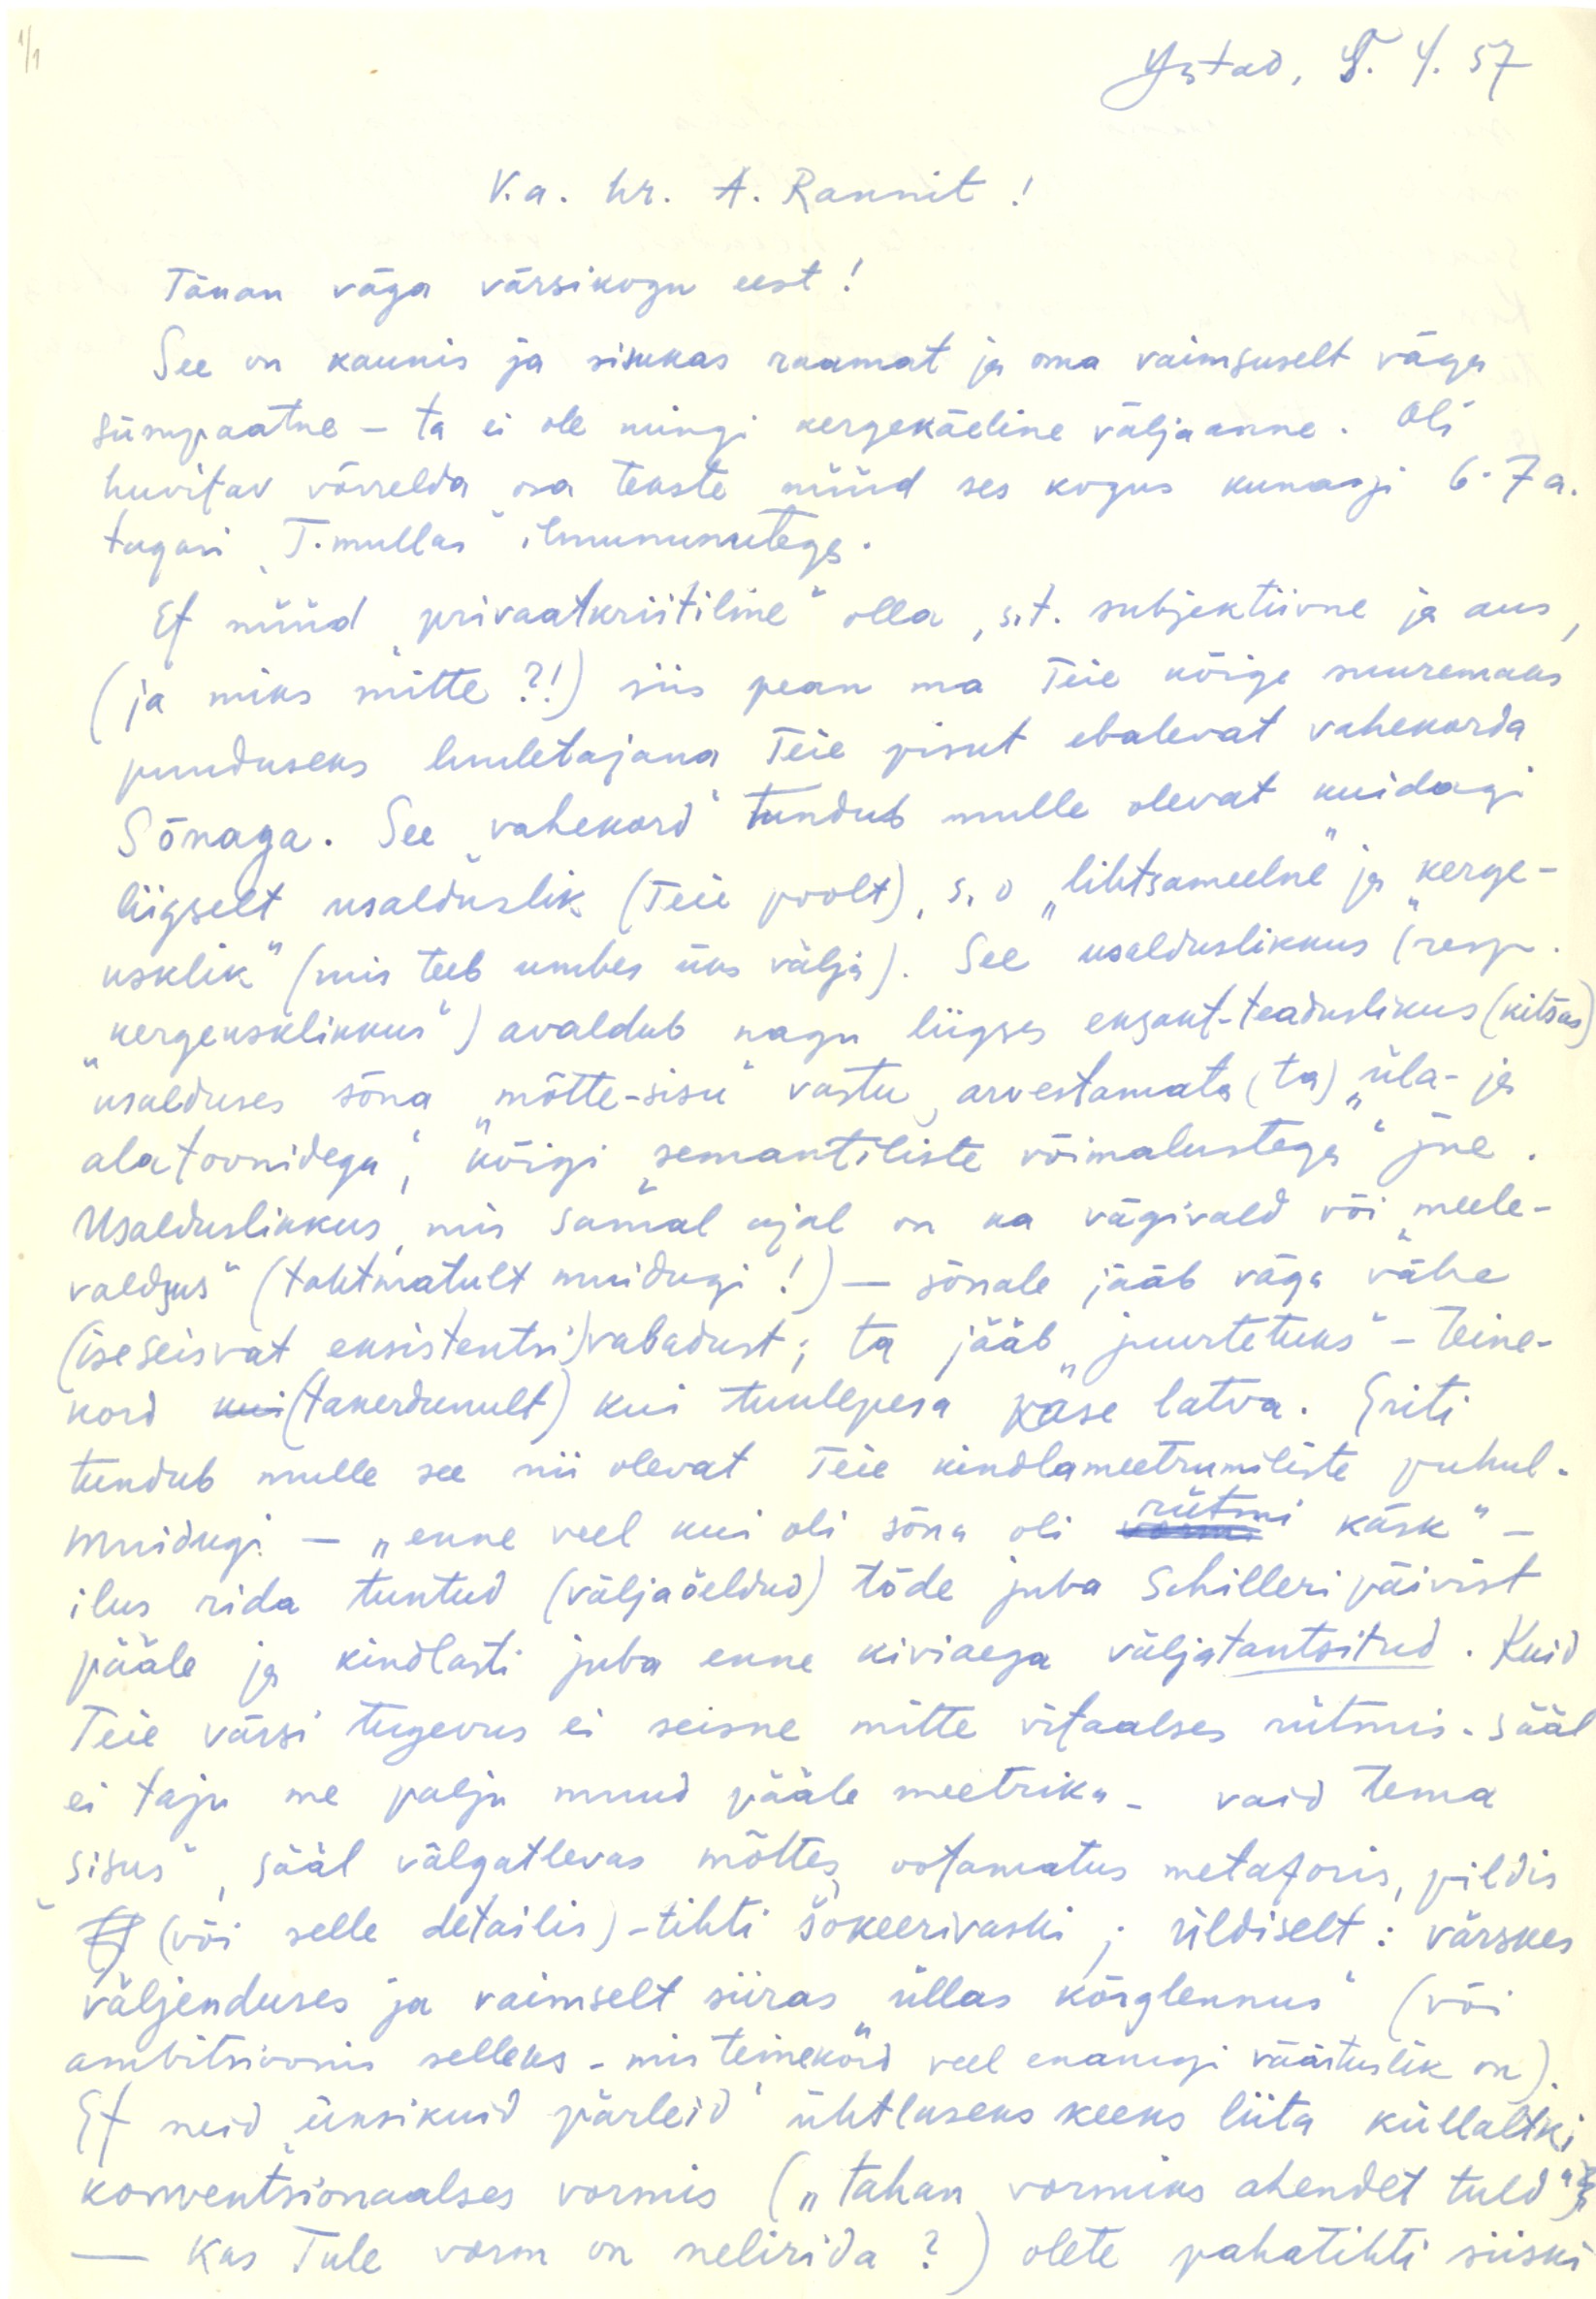 1/1
Ystad, 8. 4. 57
V.a. hr. A. Rannit!
Tänan väga värsikogu eest!
See on kaunis ja sisukas raamat ja oma vaimsuselt väga
sümpaatne – ta ei ole mingi kergekäeline väljaanne. Oli
huvitav võrrelda osa tekste nüüd ses kogus kunagi 6-7 a.
tagasi „T.mullas" ilmununutega.
Et nüüd „privaatkriitiline" olla, s.t. subjektiivne ja aus,
(ja miks mitte?!) siis pean ma Teie kõige suuremaks
puuduseks luuletajana Teie pisut ebalevat vahekorda
Sõnaga. See „vahekord" tundub mulle olevat kuidagi
liigselt usalduslik (Teie poolt), s.o „lihtsameelne" ja „kerge-
usklik" (mis teeb umbes üks välja). See usalduslikkus (resp.
„kergeusklikkus") avaldub nagu liigses eksakt-teaduslikus (kitsas)
usalduses sõna „mõtte-sisu" vastu, arvestamata (ta) „üla- ja
alatoonidega", kõigi „semantiliste võimalustega" jne.
Usalduslikkus, mis samal ajal on ka vägivald või „meele-
valdsus" (tahtmatult muidugi!) — sõnale jääb väga vähe
(iseseisvat eksistentsi)vabadust; ta jääb „juurtetuks" – teine-
kord kui (takerdunult) kui tuulepesa kase latva. Eriti
tundub mulle see nii olevat Teie kindlameetrumiliste puhul.
Muidugi — „enne veel kui oli sõna oli rütmi käsk" —
ilus rida tuntud (väljaöeldud) tõde juba Schilleri päivist
pääle ja kindlasti juba enne kiviaega väljatantsitud. Kuid
Teie värsi tugevus ei seisne mitte vitaalses rütmis - sääl
ei taju me palju muud pääle meetrika - vaid tema
„sisus", sääl välgatlevas mõttes, ootamatus metaforis, pildis
(või selle detailis) - tihti šokeerivaski; üldiselt: värskes
väljenduses ja vaimselt siiras „üllas kõrglennus" (või
ambitsioonis selleks - mis teinekord veel enamgi väärtuslik on).
Et neid „üksikuid pärleid" ühtluseks keeks liita küllaltki
konventsionaalses vormis („tahan vormiks ahendet tuld"
— Kas Tule vorm on nelirida?) olete pahatihti siiski